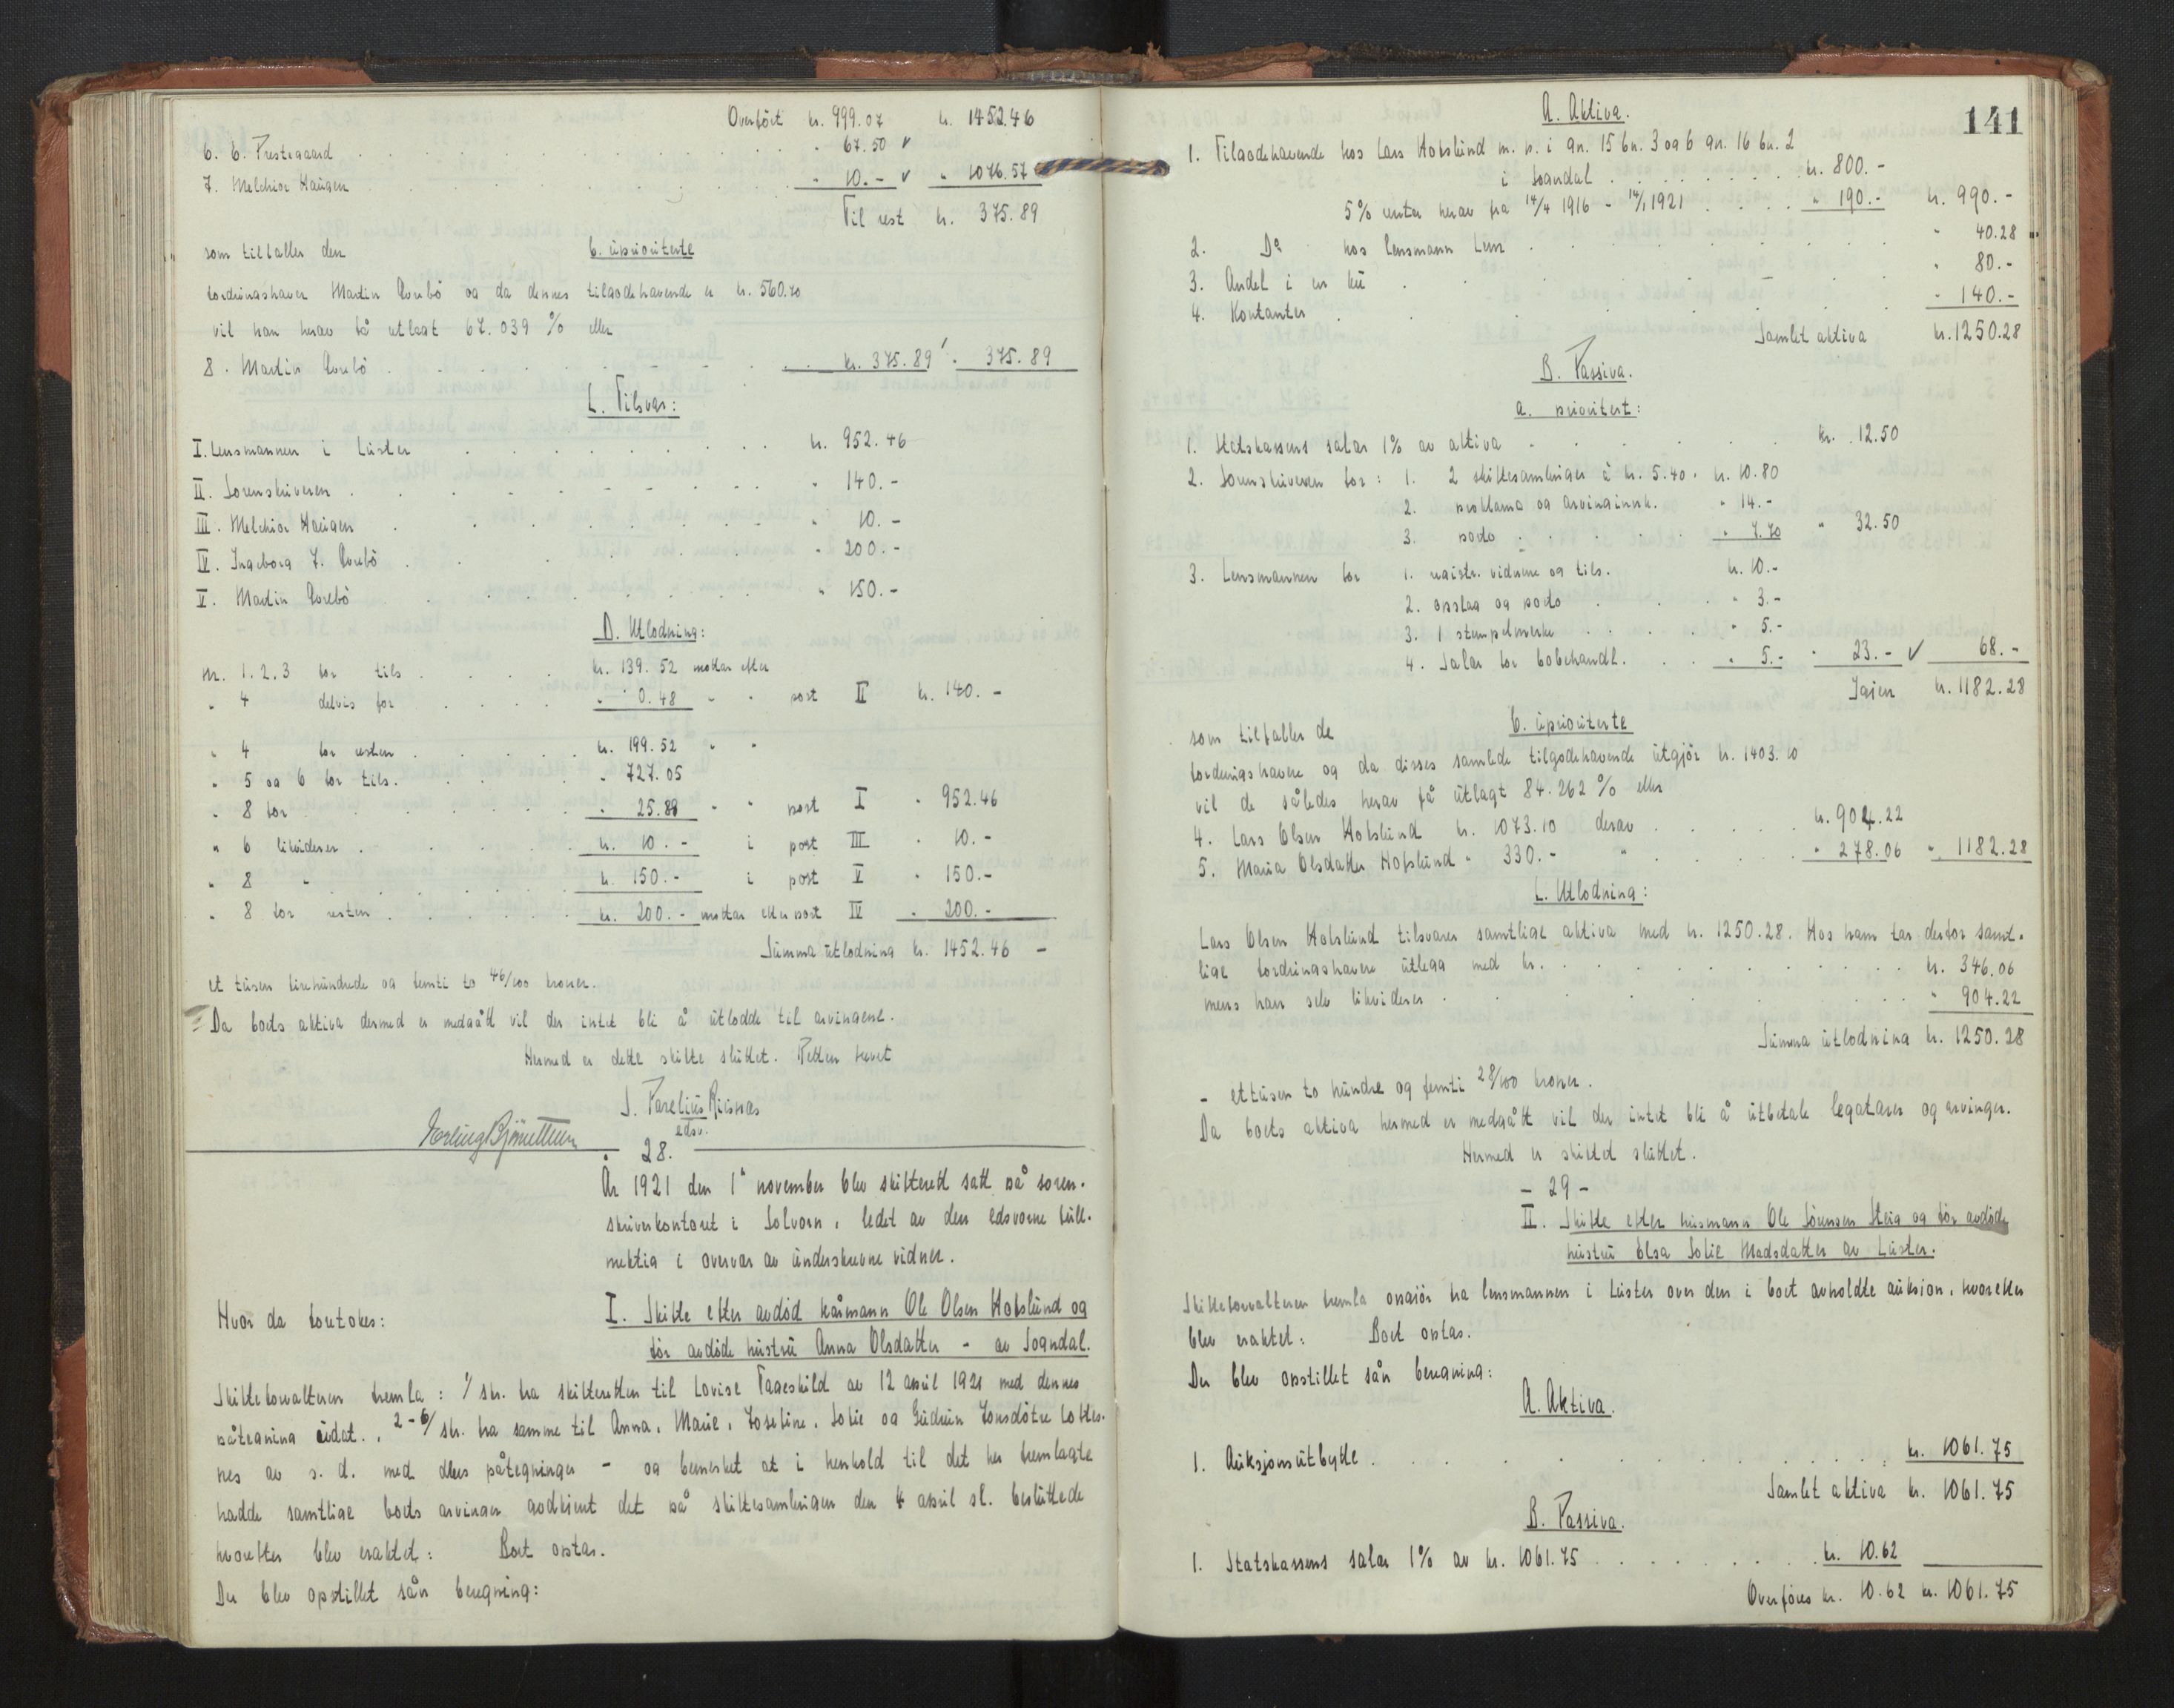 Overfört kr. 999.07 kr. 1452.46
6. E. Prestegaard . . . " 67.50 ✓
7. Melchior Haugen . . . " 10.- ✓ " 1076.57
Til rest kr. 375.89
som tilfaller den b. upriorterte
fordringshaver Martin Kvebö og da dennes tilgodehavende er kr. 560.70
vil han herav få utlagt 67.039 % eller
8. Martin . . . kr. 375.89 " 375.89
C. Tilsvar:
I. Lensmannen i Luster . . . kr. 952.46
II. Sorenskriveren . . . " 140.-
III. Melchior Haugen . . . " 10.-
IV. Ingeborg J. . . . " 200.-
V. Martin . . . " 150.-
D. Utlodning:
Nr. 1.2.3 for tils . . . kr. 139.52 mottar efter
" 4 delvis for . . . " 0.48 " " post II kr. 140.-
" 4 for resten . . . kr. 199.52 " "
" 5 og 6 for tils. . . . " 727.05
" 8 for . . . " 25.89 " " post I " 952.46
" 6 likviderer . . . kr. 10.- i post III " 10.-
" 8 " . . . kr. 150.- i post V " 150.-
" 8 for resten . . . kr. 200.- mottar efter post IV " 200.-
Summa utlodning kr. 1452.46 -
et tusen firehundrede og femti to 46/100 kroner.
Da boets aktiva dermed er medgått vil der intet bli å utlodde til arvingene.
Hermed er dette skifte sluttet. Retten hevet
J. Farelius Risnæs
edsv.
28.
År 1921 den 1ste november blev skifterett satt på soren-
skriverkontoret i Solvorn, ledet av den edsvorne full-
mektig i overvær av underskrevne vidner.
Hvor da foretokes: I. Skifte efter avdöd kårmann Ole Olsen Hofslund og
för avdöde hustru Anna Olsdatter - av Sogndal.
Skifteforvalteren fremla: 1/ skr. fra skifteretten til Lovise Fagereskild av 12 april 1921 med dennes
påtegning uidat., 2-6/ skr. fra samme til Anna, Marie, Josefine, Sofie og Gudrun Jonsdötre
nes av s. d. med deres påtegninger - og bemerket at i henhold til det her fremlagte
hadde samtlige boets arvinger godkjent det på skiftesamlingen den 4 april sl. besluttede
hvorefter blev eraktet: Boet optas.
Der blev opstillet sån beregning:
141
A. Aktiva.
1. Tilgodehavende hos Lars Hofslund m. p. i gn. 15 bn. 3 og 6 gn. 16 bn. 2
i Sogndal . . . kr. 800.-
5% renter herav fra 14/4 1916 - 14/1 1921 . . . " 190.- kr. 990.-
2. Do hos lensmann Lem . . . " 40.28
3. Andel i en ku . . . " 80.-
4. Kontanter . . . " 140.-
Samlet aktiva kr. 1250.28
B. Passiva.
a. prioritert:
1. Statskassens salær 1% av aktiva . . . kr. 12.50
2. Sorenskriveren for: 1. 2 skiftesamlinger à kr. 5.40. kr. 10.80
2. proklama og arvinginnk. " 14.-
3. porto . . . " 7.70 " 32.50
3. Lensmannen for 1. registr. vidnene og tils. kr. 10.-
2. opslag og porto . . . " 3.-
3. 1 stempelmerke . . . " 5.-
4. Salær for bobehandl. . . . " 5.- " 23.- ✓ 68.-
Igjen kr. 1182.28
som tilfaller de b. uprioriterte
fordringshavere og da disses samlede tilgodehavende utgjör kr. 1403.10
vil de således herav få utlagt 84.262 % eller
4. Lars Olsen Hofslund kr. 1073.10 derav . . . kr. 904.22
5. Maria Olsdatter Hofslund " 330.- " . . . " 278.06 " 1182.28
C. Utlodning:
Lars Olsen Hofslund tilsvarer samtlige aktiva med kr. 1250.28. Hos ham tar derfor samt-
lige fordringshavere utlegg med kr. . . . kr. 346.06
mens han selv likviderer . . . " 904.22
Summa utlodning kr. 1250.28
- ettusen to hundre og femti 28/100 kroner.
Da boets aktiva hermed er medgått vil der intet bli å utbetale legatarer og arvinger.
Hermed er skiftet sluttet.
- 29 -
II. Skifte efter husmann Ole Sörensen Steig og för avdöde
hustru Elsa Sofie Madsdatter av Luster.
Skifteforvalteren fremla opgjör fra lensmannen i Luster over den i boet avholdte auksion, hvorefter
blev eraktet: Boet optas.
Der blev opstillet sån beregning:
A. Aktiva.
1. Auksjonsutbytte . . . kr. 1061.75
Samlet aktiva kr. 1061.75
B. Passiva.
1. Statskassens salær 1% av kr. 1061.75 . . . kr. 10.62
Overföres kr. 10.62 kr. 1061.75